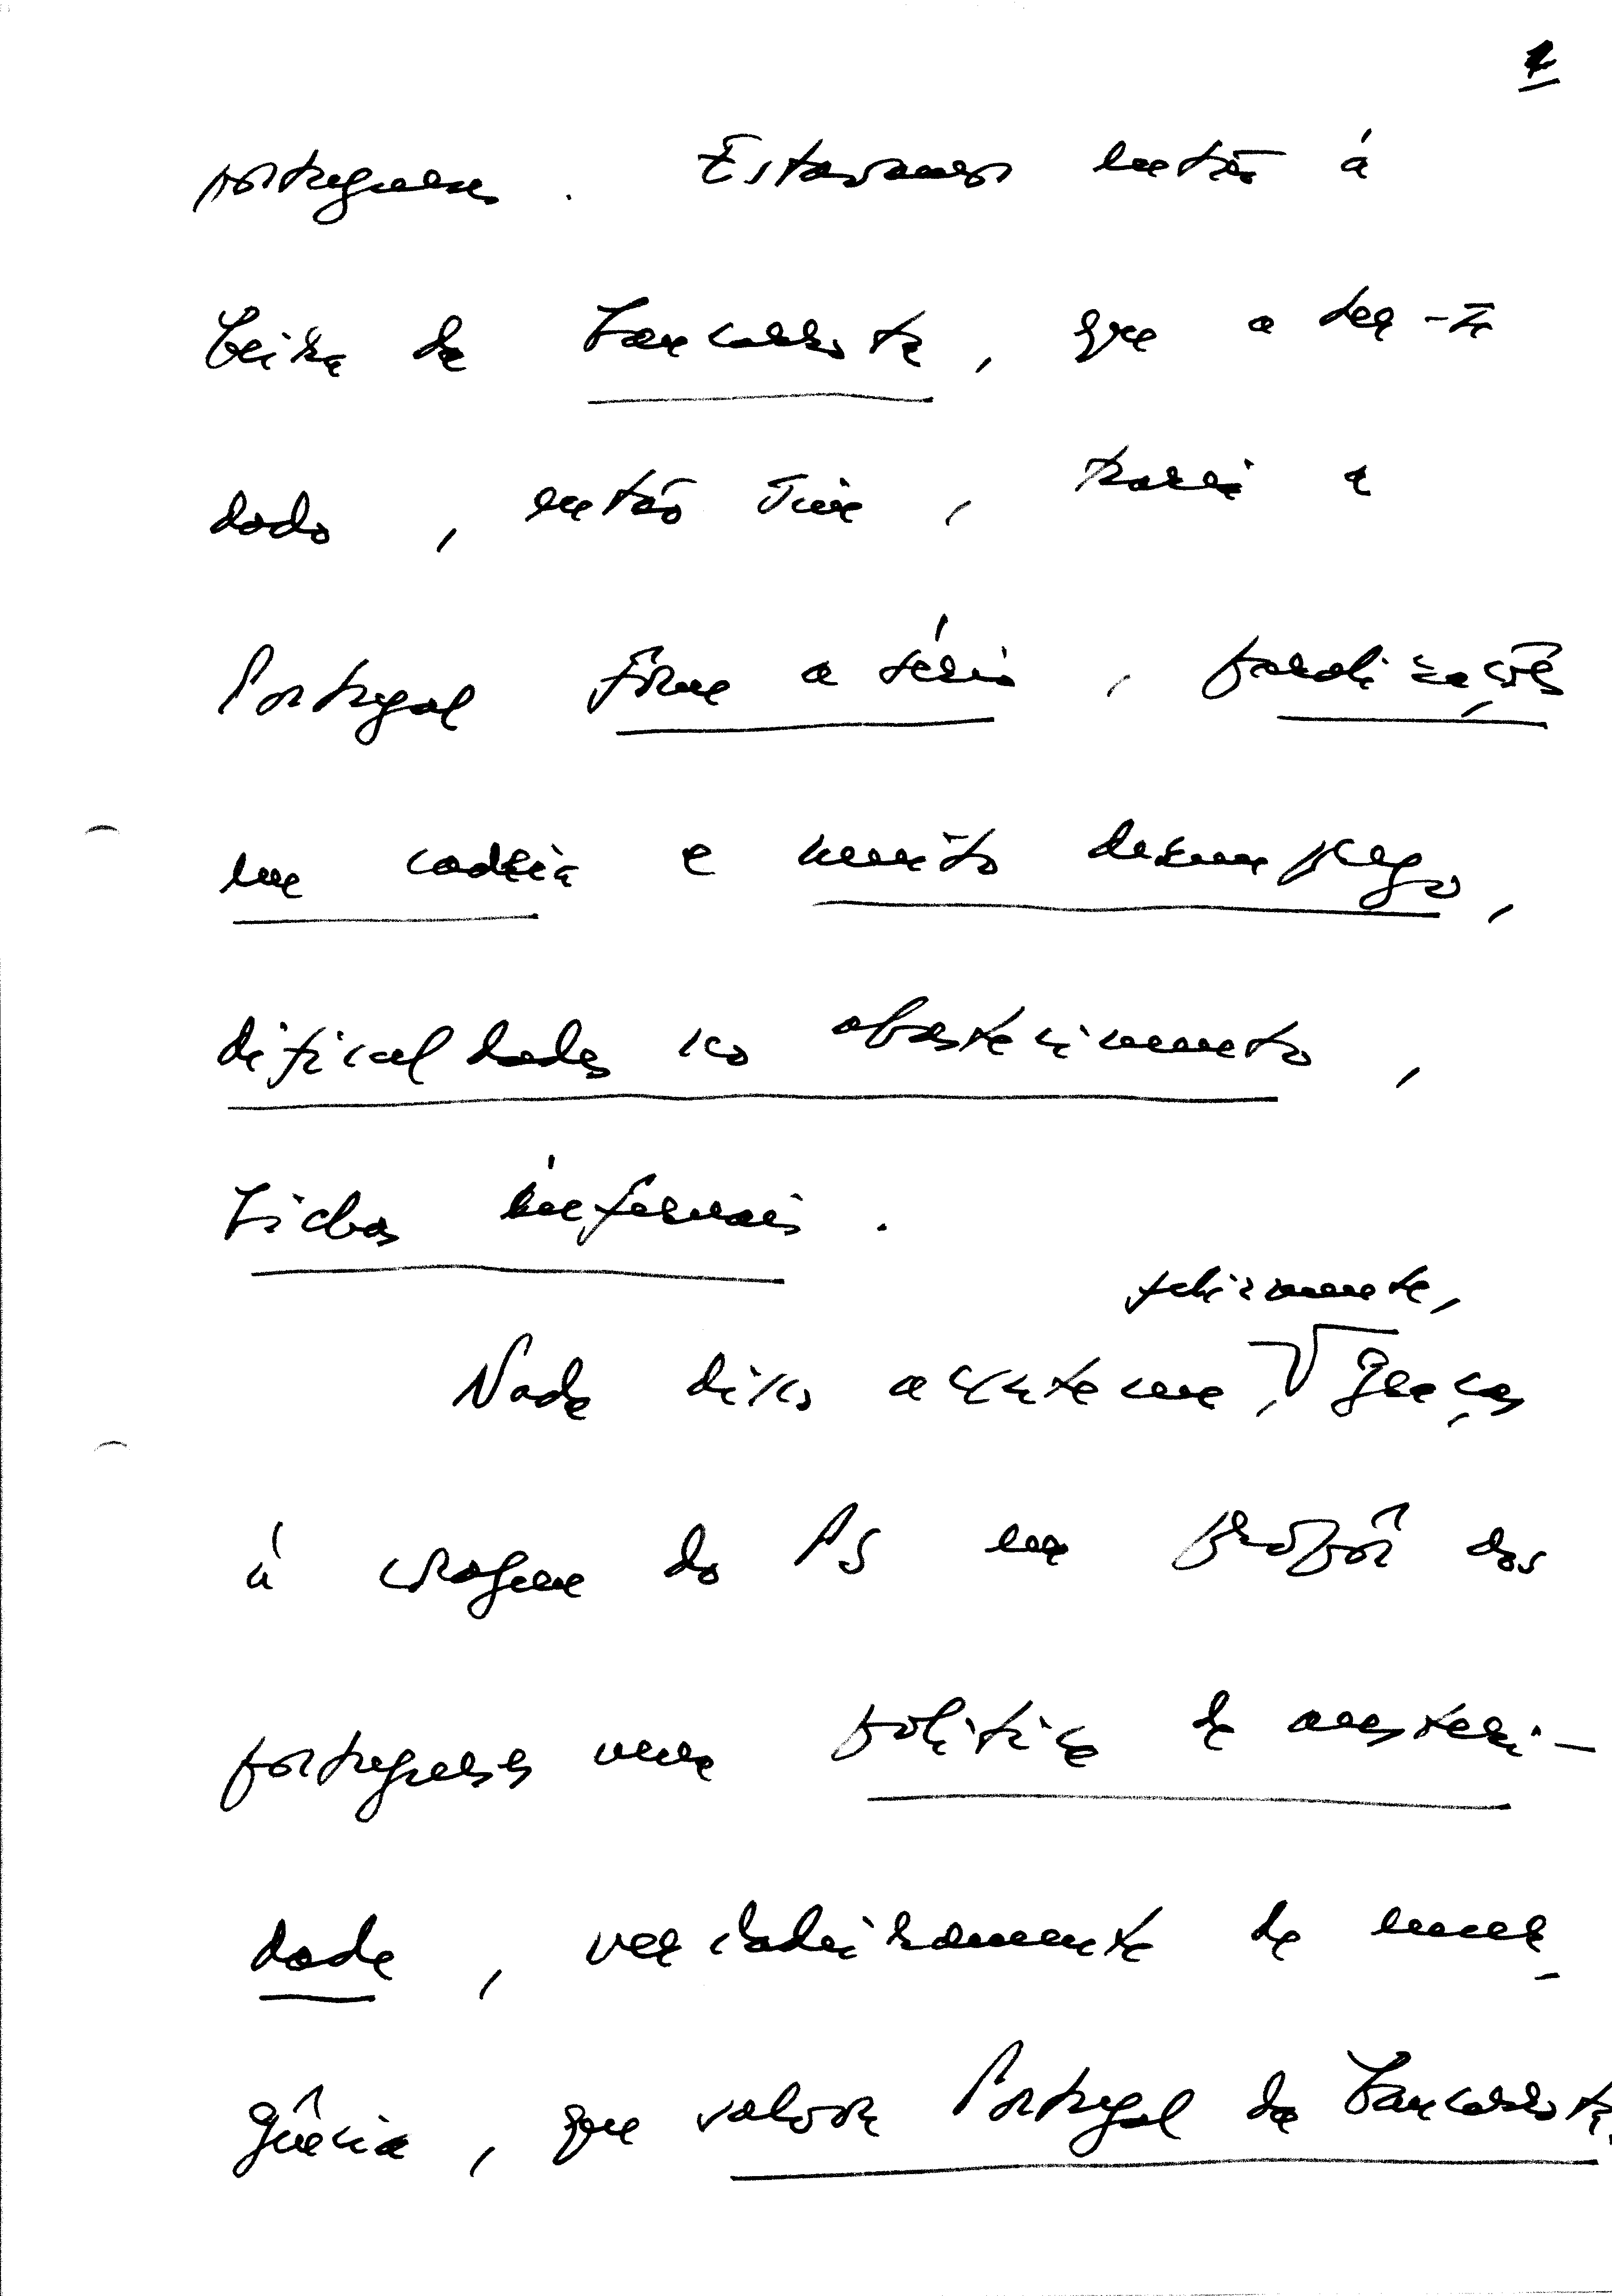 portuguesa. Estavamos então á
beira da bancarrota, que a ter-se
dado, então sim, traria a
Portugal fome a sério, paralizações
em cadeia e muito desemprego,
dificuldades no abastecimento,
bichas infernais.
felizmente,
Nada disso aconteceu, graças
á coragem do PS em propôr aos
portugueses uma política de austeri-
dade, verdadeiramente de emer-
gência, que salvou Portugal da bancarrota,